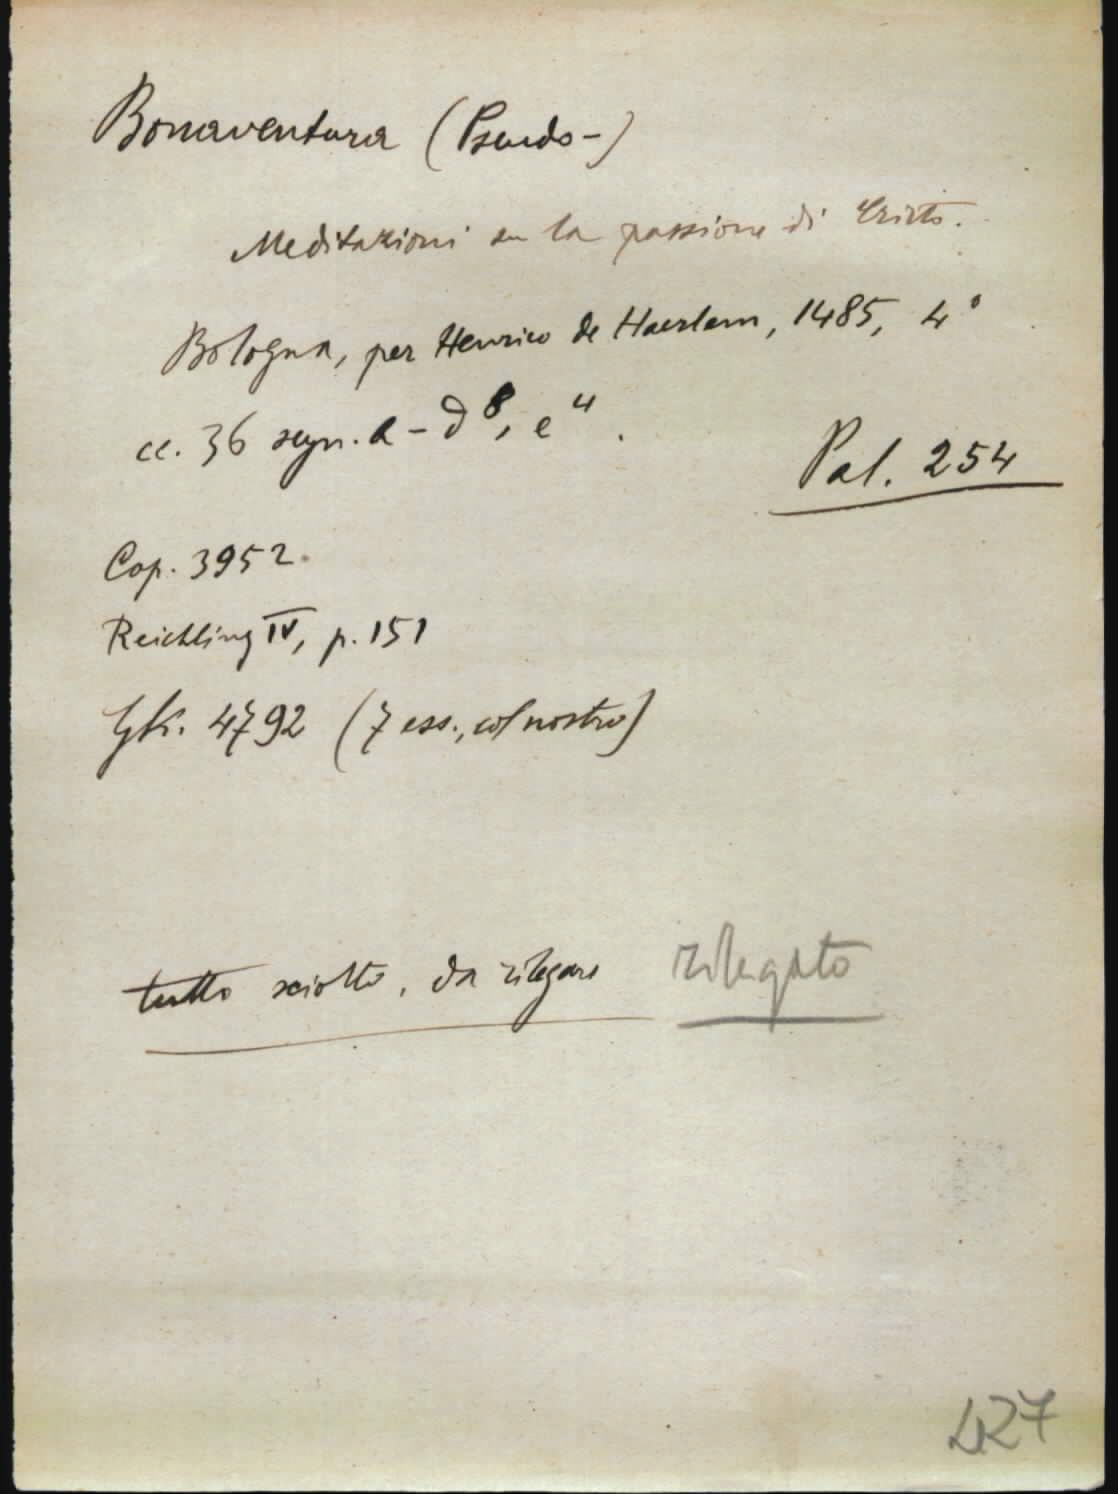 Bonaventura (Pseudo-)
Meditazioni su la passione di Cristo.
Bologna, per Henrico de Haerlem, 1485, 4°
cc. 36 segn. a-d⁸, e⁴.
Pal. 254
Cop. 3952.
Reichling IV, p. 151
Gk. 4792 (7 ess., col nostro)
tutto sciolto, da rilegare rilegato
427